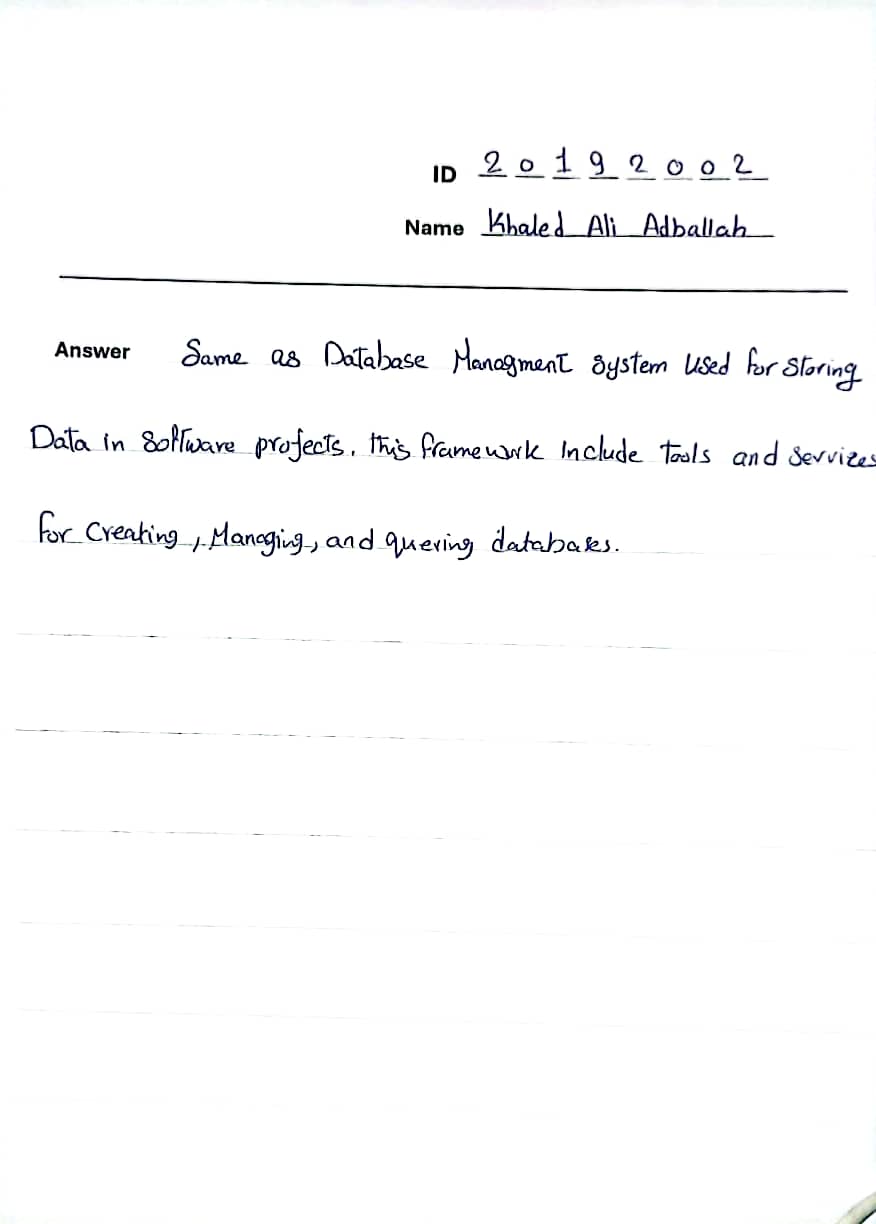 ID 20192002
Name Khaled Ali Adballah
Answer Same as Database Managment System Used for Storing
Data in Software projects, this framework Include tools and Services
for Creating, Managing, and quering databases.